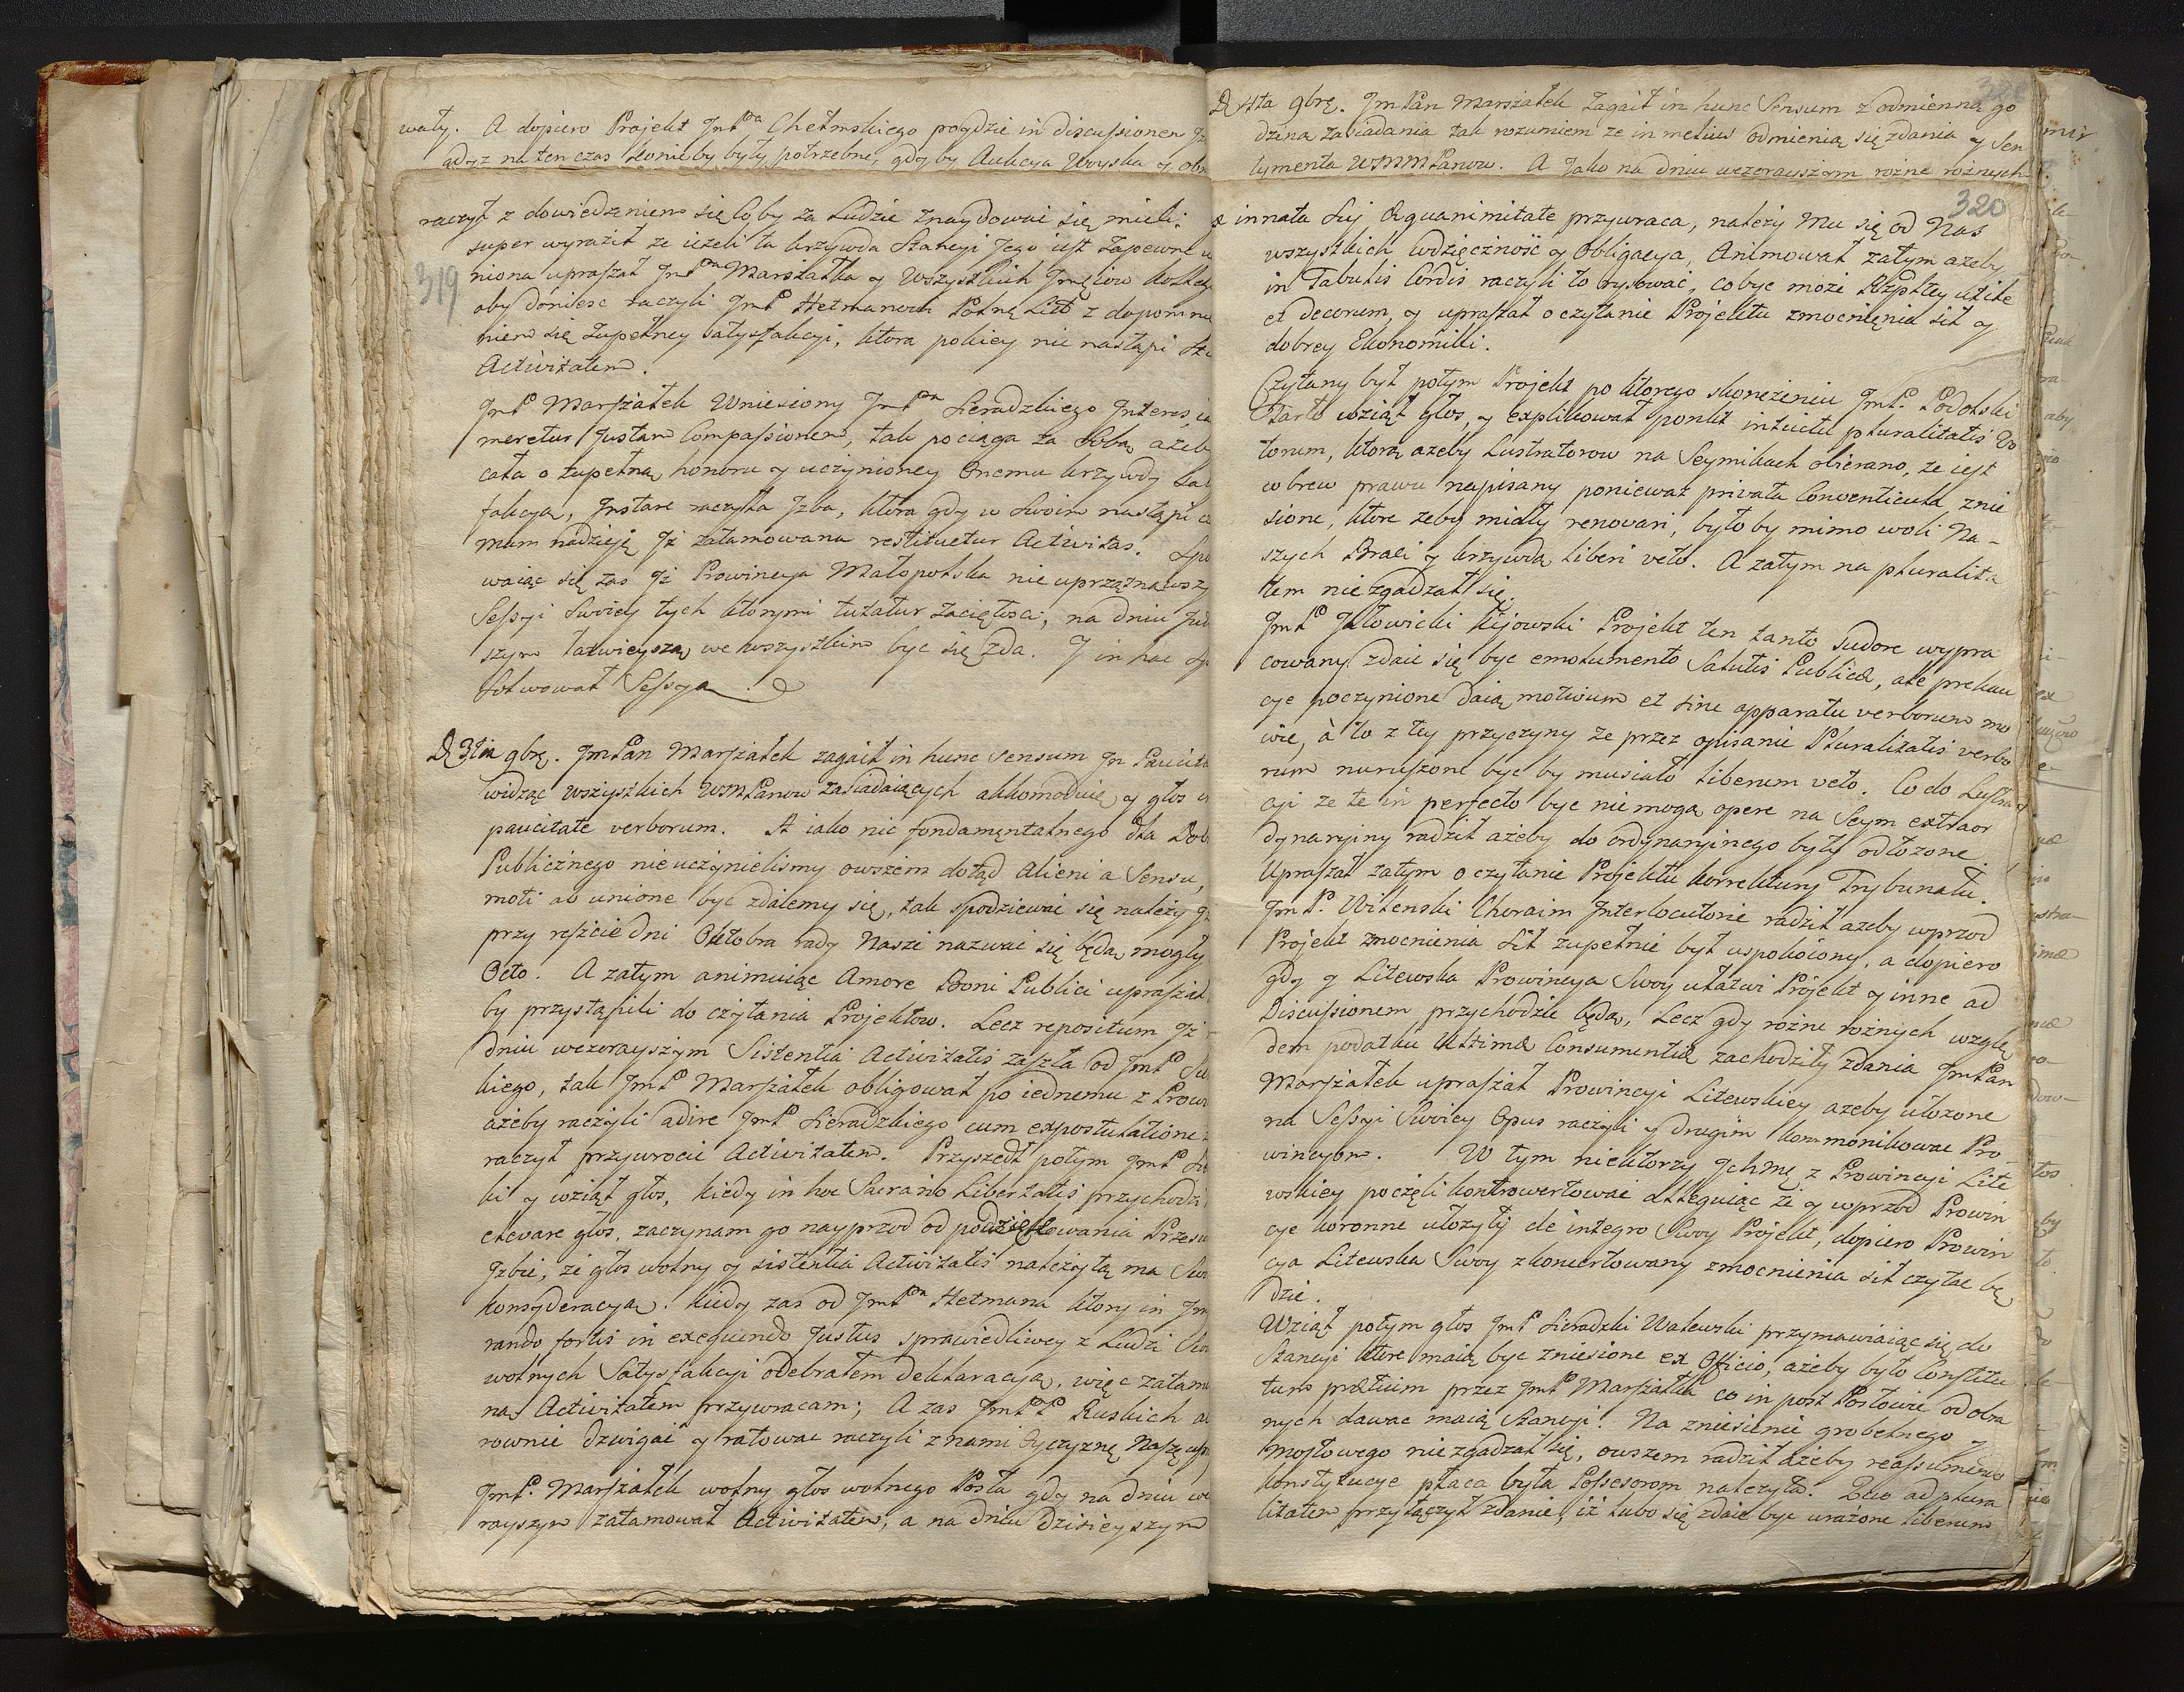 wały. A dopiero Projekt JmP^na Chełmskiego pogdzie in discussionem
gdyz na ten czas konieby były potrzebne, gdyby Aukcya Woyska y
319
raczył z dowiedzeniem się coby za Ludzie znaydowac się mieli:
super wyraził ze iezeli ta krzywda Stancyi Jego iest zapewne
niona upraszał JmP^na Marszałka y Wszystkich
aby doniesc raczyli JmP Hetmanowi Polnę Litt z dopomnie
niem się zupełney satysfakcyi, ktora pokiey nie nastąpi
Activitatem.
JmP Marszałek Wniesiony JmP^na Sieradzkiego Interes,
meretur Justam Compassionem, tak pociąga za Sobą azeby
cała o zupełną honoru y uczynioney Onemu krzywdy
fakcyą, Instare raczyła Jzba, ktora gdy w swoim nastąpi
mam nadzieję Jż zatamowana restituetur Activitas.
waiąc się zas Jż Prowincya Małopolska nie uprzątnąwszy
Sessyi Swoiey tych ktorymi tutatur zaciętosci, na dniu
szym łatwieyszą we wszystkim byc się zda. J in hac
solwował Sessyą.
D 31ia 9brę. JmPan Marszałek zagaił in hunc sensum Jn Paucita
widząc wszystkich WMMPanow zasiadaiących akkomoduię y głos
paucitate verborum. A iako nic fondamentalnego dla Dobr
Publicznego nieuczynielismy owszem dotąd alieni a Sensu,
moti ab unione byc zdalemy się, tak spodziewai się należy
przy reszcie dni Oktobra rady Nasze nazwac się będą mogły
Octo. A zatym animuiąc Amore Boni Publici upraszał
by przystąpili do czytania Projektow. Lecz repositum Jż
dniu wczorayszym Sistentia Activitatis zaszła od JmP
kiego, tak JmP Marszałek obligował po iednemu z Prow
ażeby raczyli adire JmP Sieradzkiego cum expostulatione
raczył przywrocic Activitatem. Przyszedł potym JmP
ki y wziął głos, kiedy in hoc Sacrario Libertatis przychodzi
elevare głos, zaczynam go nayprzod od podziękowania
Jzbie, że głos wolny y sistentia Activitatis należytą ma
konsyderacyą. Kiedy zas od JmP^na Hetmana ktory in
rando fortis in exequendo Justus sprawiedliwey z Ludzi
wolnych Satysfakcyi odebrałem deklaracyą, więc zatamo
ną Activitatem przywracam; A zas JmPP Ruskich
rownie dzwigac y ratowac raczyli z nami Oyczyznę Naszę
JmP. Marszałek wolny głos wolnego Posła gdy na dniu
rayszym zatamował Activitatem, a na dniu dzisieyszym
D 4ta 9brę. JmPan Marszałek Zagaił in hunc Sensum z odmienną go
dziną zasiadania tak rozumiem ze in melius odmienią się zdania y Sen
tymenta WMMPanow. A Jako na dniu wczorayszym rożne rożnych
320
innata Suj Aequanimitate przywraca, należy Mu się od Nas
wszystkich wdzięczność y obligacya, Animował zatym azeby
in Tabulis Cordis raczyli to rysować, co byc może Rzpltey utile
et decorum, y upraszał o czytanie Projektu zmocnięnia sił y
dobrey Ekonomiki.
Czytany był potym Projekt po ktorego skonczeniu JmP. Podolski
Tarło wziął głos, y explikował ponkt intuitu pluralitatis Vo
torum, ktorą azeby Lustratorow na Seymikach obierano, ze iest
wbrew prawu napisany poniewaz privata Conventicula znie
sione, ktore zeby miały renovari, było by mimo woli Na-
szych Braci y krzywdą liberi veto. A zatym na pluralita
tem nie zgadzał się.
JmP Jełowicki Kijowski Projekt ten tanto Sudore wypra
cowany zdaie się byc emolumento Salutis Publicæ, ale prekau
cye poczynione daią motivum et sine apparatu verborum mo
wie, à to z tey przyczyny ze przez opisanie Pluralitatis verbo
rum naruszone byc by musiało liberum veto. Co do Lustra
cyi ze te in perfecto byc nie mogą opere na Seym extraor
dynaryiny radził ażeby do ordynaryinego były odłozone.
Upraszał zatym o czytanie Projektu korrektury Trybunału.
JmP. Witenski Choraim Interlocutorie radził azeby wprzod
Projekt zmocnienia sił zupełnie był uspokoiony, a dopiero
gdy y Litewska Prowincya Swoy ułatwi Projekt y inne ad
Discussionem przychodzic będą, Lecz gdy rożne rożnych wzglę
dem podatku Ultimæ Consumentiæ zachodziły zdania JmPan
Marszałek upraszał Prowincyi Litewskiey azeby ułozone
na Sessyi Swoiey Opus raczyli y drugim kommonikowac Pro-
wincyom. W tym niektorzy Jchmę z Prowincyi Lite
wskiey poczęli kontrowertowai alleguiąc że y wprzod Prowin
cye koronne ułozyły de integro Swoy Projekt, dopiero Prowin
cya Litewska Swoy zkoncertowany zmocnienia sił czytac bę
dzie.
Wziął potym głos JmP Sieradzki Walewski przymawiaiąc się do
Stancyi ktore maią byc zniesione ex Officio, ażeby było Constitu
tum pretium przez JmP Marszałka co in post Posłowie od obra
nych dawac maią Stancyi. Na zniesienie grobelnego y
Mostowego nie zgadzał się, owszem radził ażeby reassumendo
Konstytucye płaca była Possesorom należyta. Quo ad plura
litatem przyłączył zdanie, iż lubo się zdaie byc urażone liberum